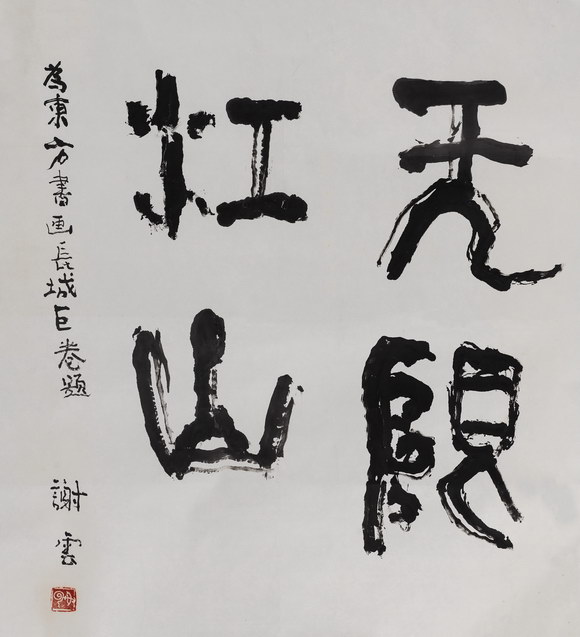 无限
江山
為東方書画長城巨卷題
謝雲